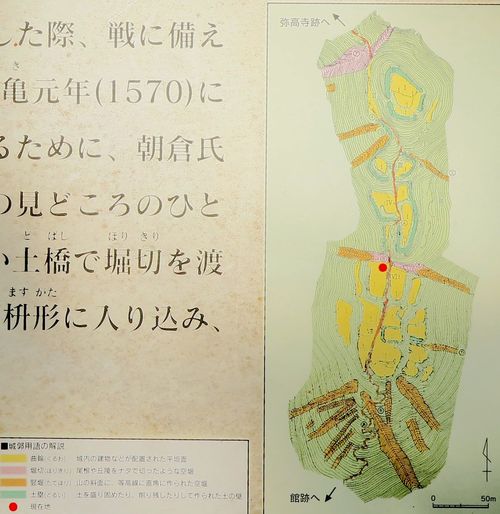 した際、戦に備え
き
亀元年(1570)に
るために、朝倉氏
の見どころのひと
どばし ほりきり
い土橋で堀切を渡
ますかた
枡形に入り込み、
弥高寺跡へ
館跡へ
0 50m
■城郭用語の解説
曲輪(くるわ) 城内の建物などが配置された平坦面
堀切(ほりきり) 尾根や丘陵をナタで切ったような空堀
竪堀(たてぼり) 山の斜面に、等高線に直角に作られた空堀
土塁(どるい) 土を盛り固めたり、削り残したりして作られた土の壁
現在地